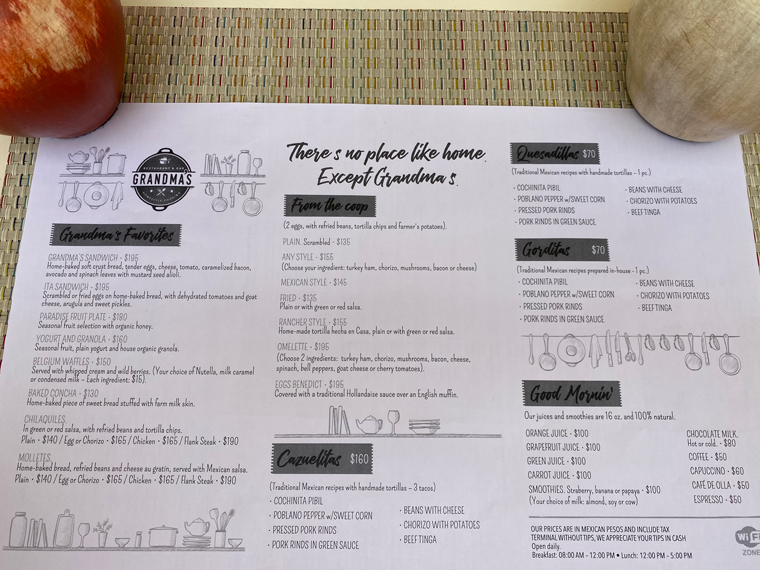 RESTAURANT & BAR
GRANDMA'S
Grandma's Favorites
GRANDMA'S SANDWICH - $195
Home-baked soft crust bread, tender eggs, cheese, tomato, caramelized bacon,
avocado and spinach leaves with mustard seed alioli.
ITA SANDWICH - $195
Scrambled or fried eggs on home-baked bread, with dehydrated tomatoes and goat
cheese, arugula and sweet pickles.
PARADISE FRUIT PLATE - $180
Seasonal fruit selection with organic honey.
YOGURT AND GRANOLA - $160
Seasonal fruit, plain yogurt and house organic granola.
BELGIUM WAFFLES - $150
Served with whipped cream and wild berries. (Your choice of Nutella, milk caramel
or condensed milk – Each ingredient: $15).
BAKED CONCHA - $130
Home-baked piece of sweet bread stuffed with farm milk skin.
CHILAQUILES
In green or red salsa, with refried beans and tortilla chips.
Plain - $140 / Egg or Chorizo - $165 / Chicken - $165 / Flank Steak - $190
MOLLETES
Home-baked bread, refried beans and cheese au gratin, served with Mexican salsa.
Plain - $140 / Egg or Chorizo - $165 / Chicken - $165 / Flank Steak - $190
There's no place like home.
Except Grandma's.
From the coop
(2 eggs, with refried beans, tortilla chips and farmer's potatoes).
PLAIN. Scrambled - $135
ANY STYLE - $155
(Choose your ingredient: turkey ham, chorizo, mushrooms, bacon or cheese)
MEXICAN STYLE - $145
FRIED - $135
Plain or with green or red salsa.
RANCHER STYLE - $155
Home-made tortilla hecha en Casa, plain or with green or red salsa.
OMELETTE - $195
(Choose 2 ingredients: turkey ham, chorizo, mushrooms, bacon, cheese,
spinach, bell peppers, goat cheese or cherry tomatoes).
EGGS BENEDICT - $195
Covered with a traditional Hollandaise sauce over an English muffin.
Cazuelitas $160
(Traditional Mexican recipes with handmade tortillas – 3 tacos)
· COCHINITA PIBIL
· POBLANO PEPPER w/SWEET CORN
· PRESSED PORK RINDS
· PORK RINDS IN GREEN SAUCE
· BEANS WITH CHEESE
· CHORIZO WITH POTATOES
· BEEF TINGA
Quesadillas $70
(Traditional Mexican recipes with handmade tortillas – 1 pc.)
· COCHINITA PIBIL
· POBLANO PEPPER w/SWEET CORN
· PRESSED PORK RINDS
· PORK RINDS IN GREEN SAUCE
· BEANS WITH CHEESE
· CHORIZO WITH POTATOES
· BEEF TINGA
Gorditas $70
(Traditional Mexican recipes prepared in-house – 1 pc.)
· COCHINITA PIBIL
· POBLANO PEPPER w/SWEET CORN
· PRESSED PORK RINDS
· PORK RINDS IN GREEN SAUCE
· BEANS WITH CHEESE
· CHORIZO WITH POTATOES
· BEEF TINGA
Good Mornin'
Our juices and smoothies are 16 oz. and 100% natural.
ORANGE JUICE - $100
GRAPEFRUIT JUICE - $100
GREEN JUICE - $100
CARROT JUICE - $100
SMOOTHIES. Straberry, banana or papaya - $100
(Your choice of milk: almond, soy or cow)
CHOCOLATE MILK.
Hot or cold. - $80
COFFEE - $50
CAPUCCINO - $60
CAFÉ DE OLLA - $50
ESPRESSO - $50
OUR PRICES ARE IN MEXICAN PESOS AND INCLUDE TAX
TERMINAL WITHOUT TIPS, WE APPRECIATE YOUR TIPS IN CASH
Open daily.
Breakfast: 08:00 AM – 12:00 PM • Lunch: 12:00 PM - 5:00 PM
Wi Fi
ZONE